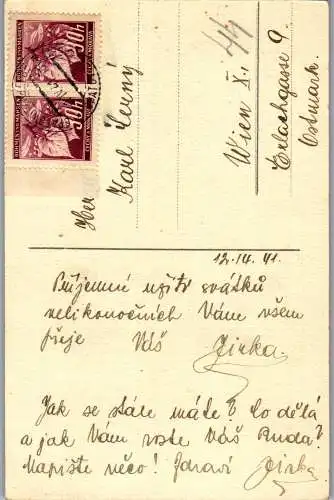 BÖHMEN UND MÄHREN
30h
30h
44
Herr
Karl Černý
Wien X.,
Erlachgasse 9.
Ostmark.
12./4. 41.
Příjemné užití svátků
velikonočních Vám všem
přeje Váš Jirka.
Jak se stále máte? Co dělá
a jak Vám roste Váš Ruda?
Napište něco! Zdraví Jirka